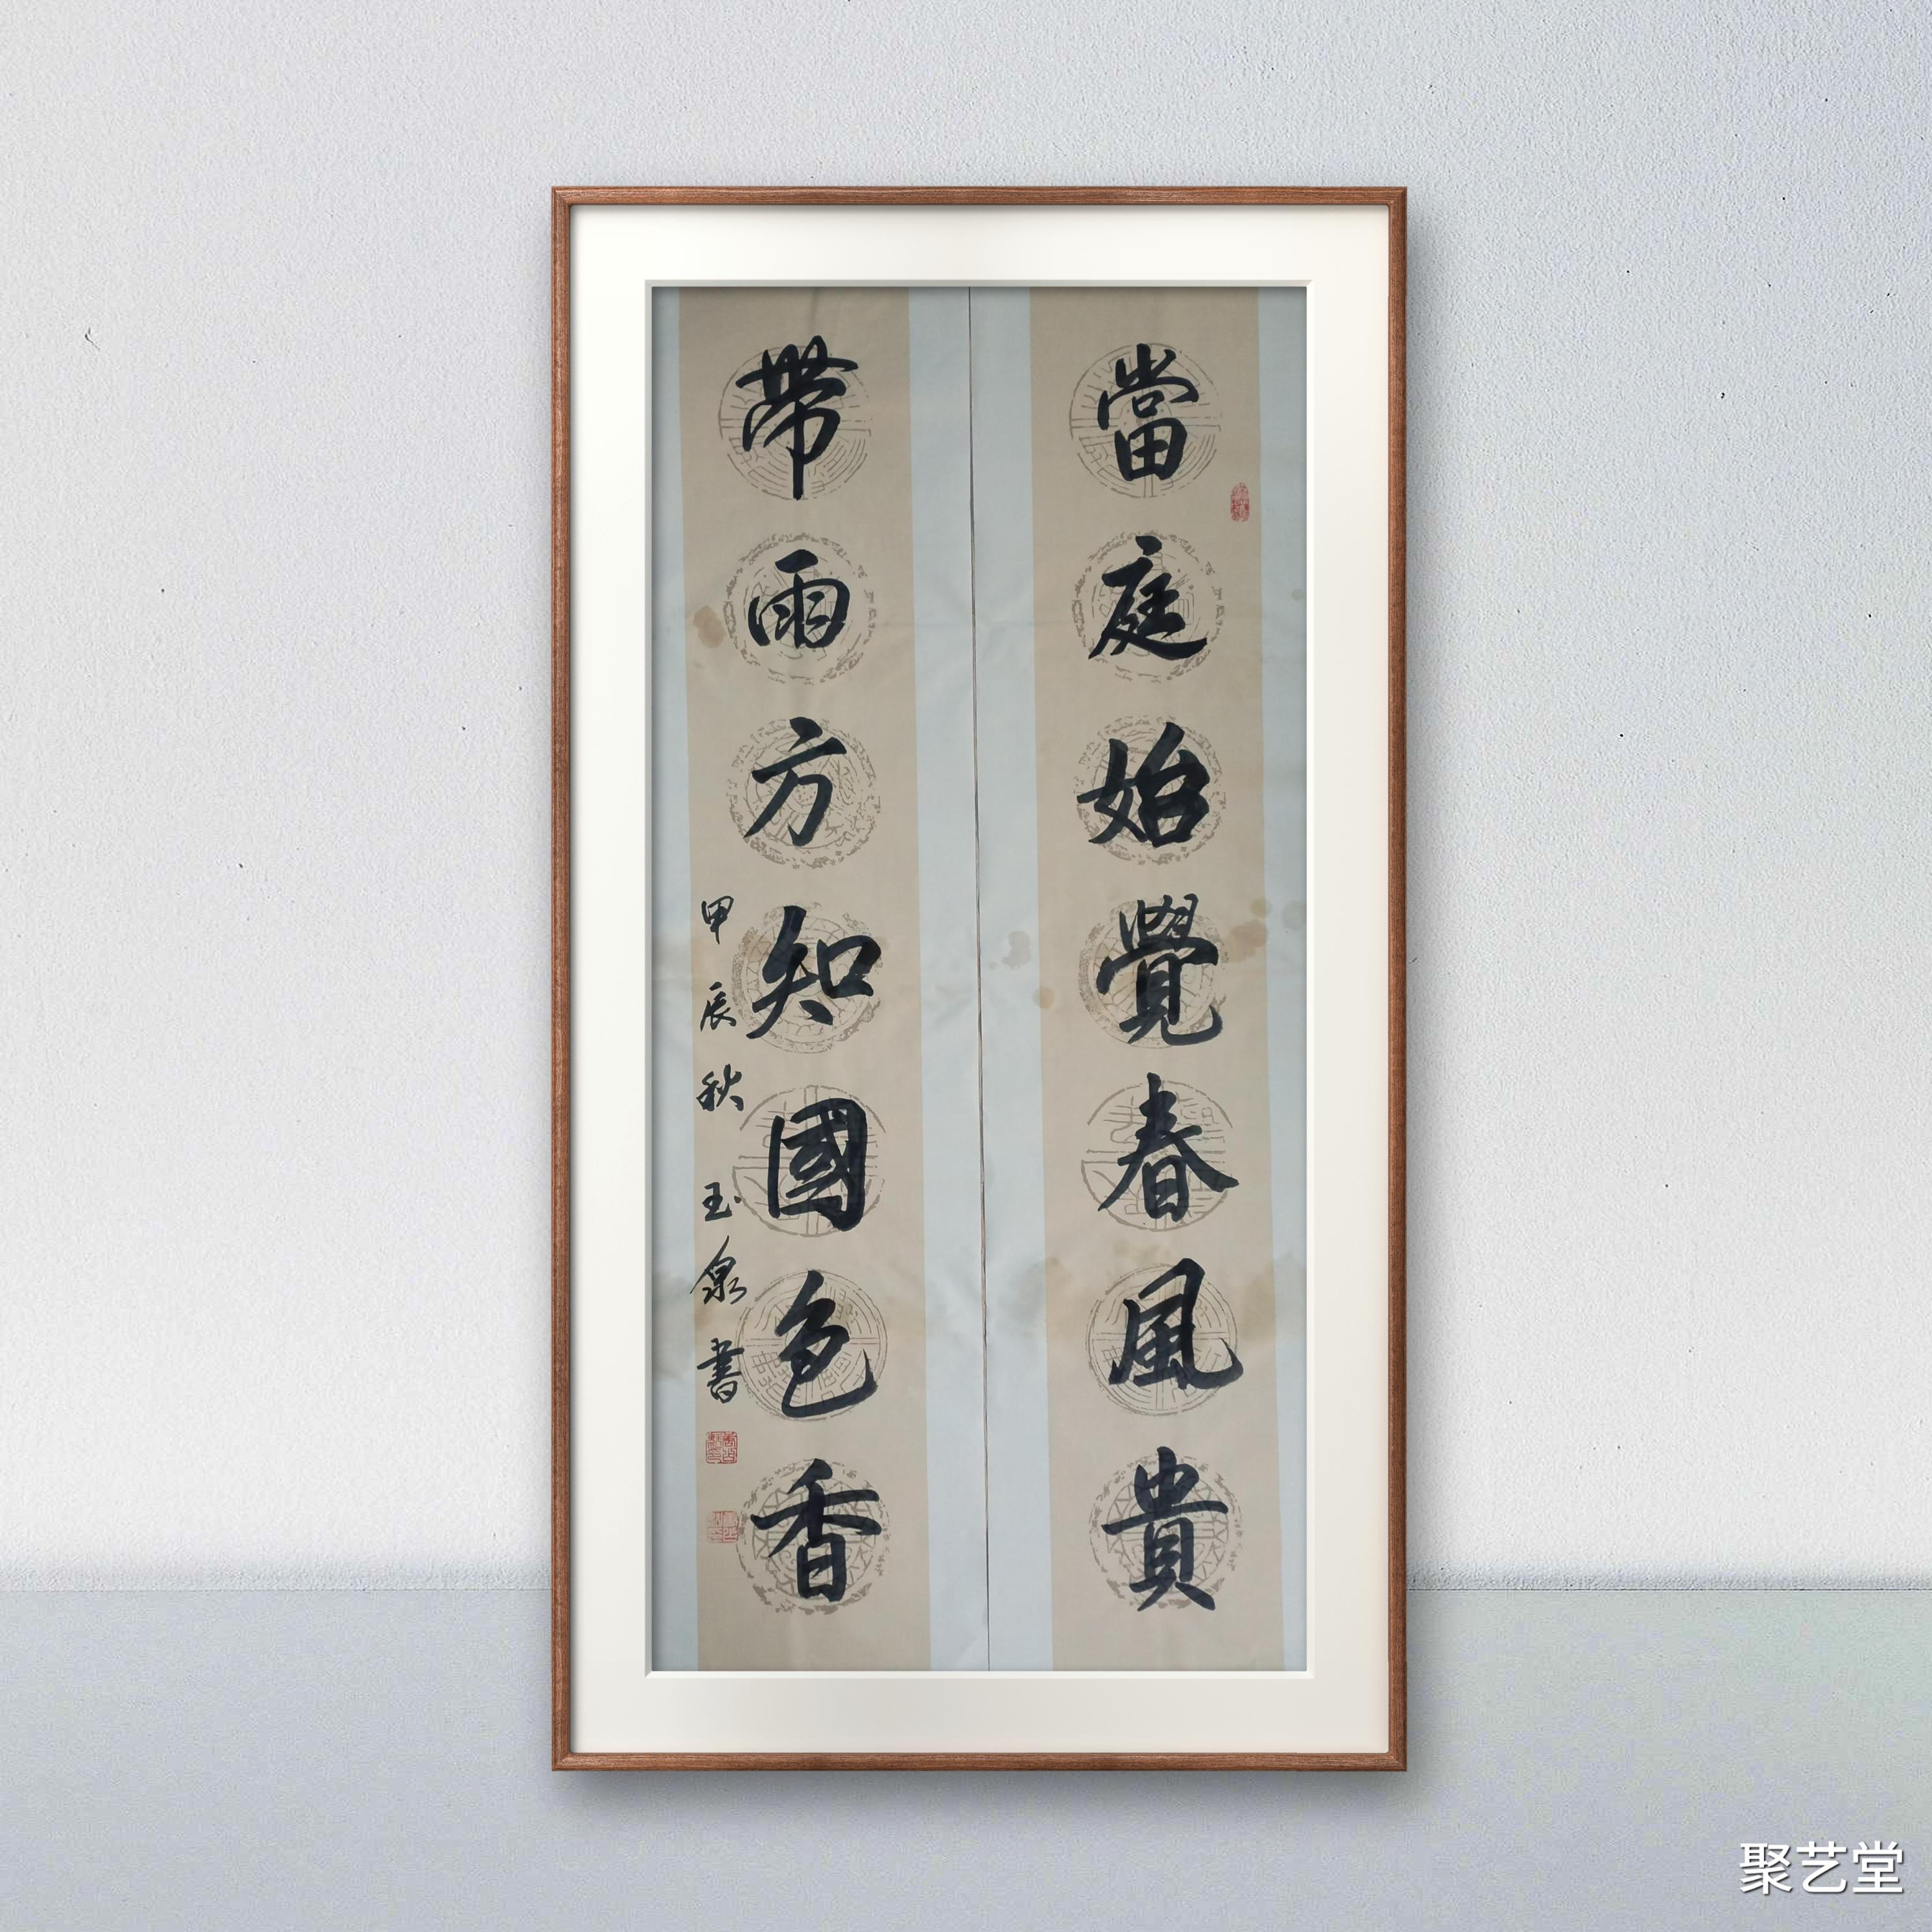 當庭始覺春風貴
帶雨方知國色香
甲辰秋玉泉書
聚艺堂